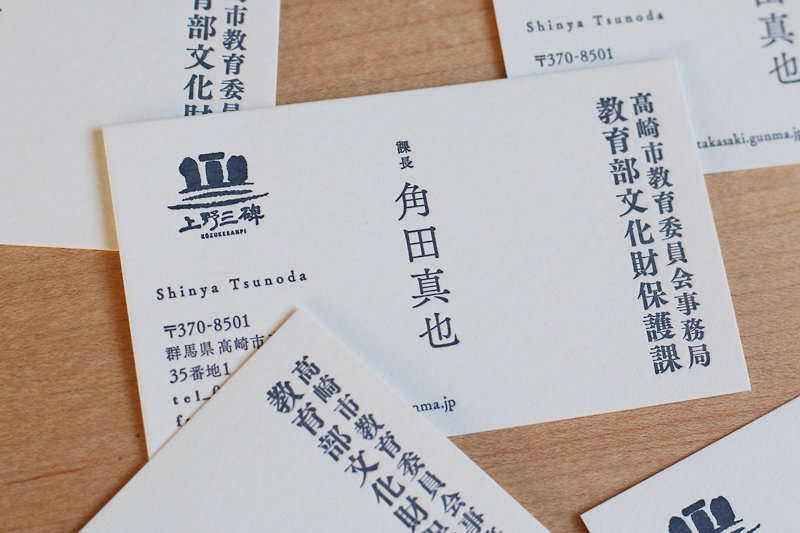 高崎市教育委員会事務局
教育部文化財保護課
課長
角田真也
上野三碑
KOZUKESANPI
Shinya Tsunoda
〒370-8501
群馬県高崎市
35番地1
tel_0
nma.jp
市教育委員
育部文化財
Shinya Tsunoda
〒370-8501
真也
takasaki.gunma.jp
高崎市教育委員会事
教育部文化財保